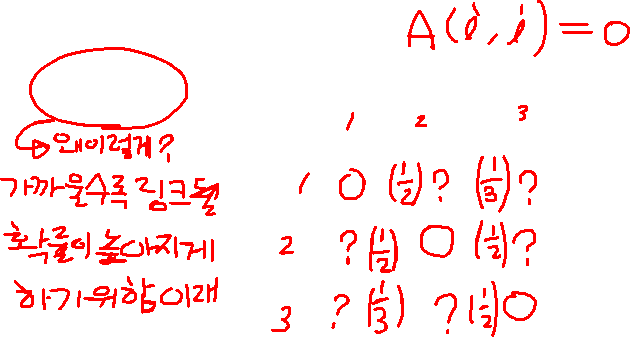 A(i, i) = 0
왜이렇게?
가까울수록 링크될
확률이 높아지게
하기위함이래
1 2 3
1 0 (1/2)? (1/3)?
2 ?(1/2) 0 (1/2)?
3 ?(1/3) ?(1/2) 0